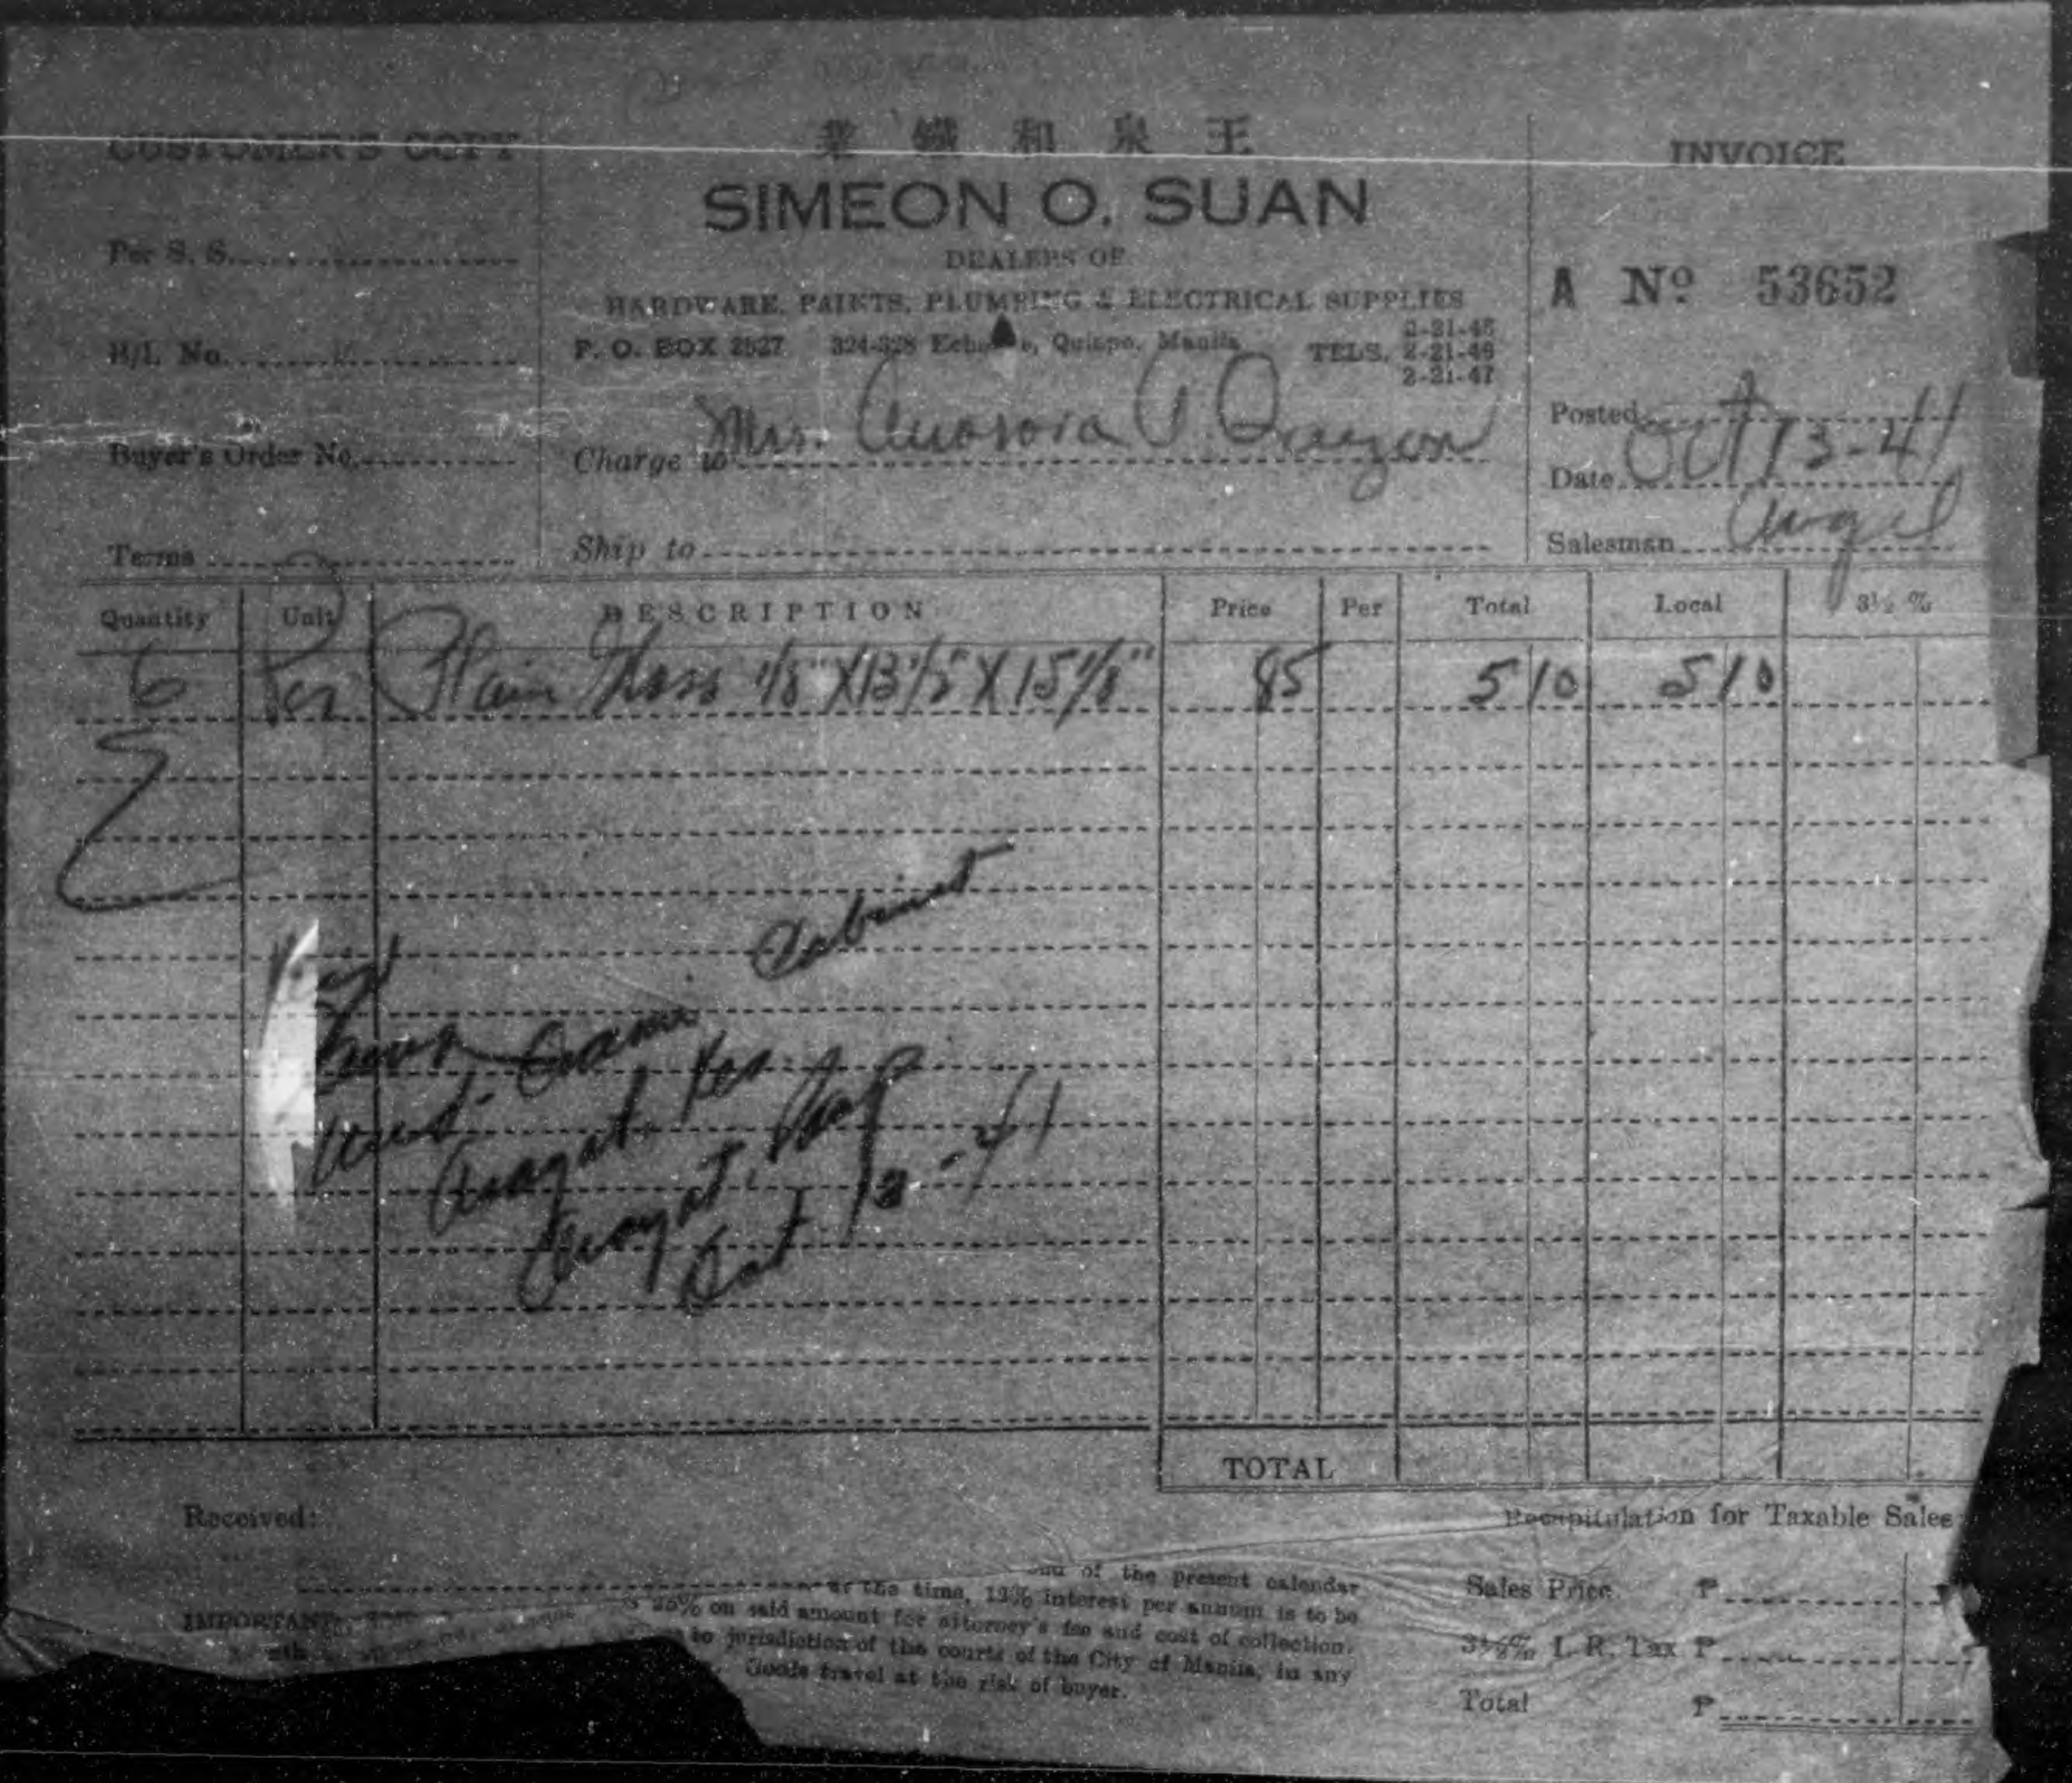 CUSTOMER'S COPY
業 鐵 和 泉 王
INVOICE
SIMEON O. SUAN
DEALERS OF
HARDWARE, PAINTS, PLUMBING & ELECTRICAL SUPPLIES
P. O. BOX 2527 324-328 Echague, Quiapo, Manila TELS. 2-21-45
2-21-46
2-21-47
Per S. S.
A Nº 53652
B/L No.
Buyer's Order No.
Charge to Mrs. Aurora A. Quezon
Posted
Date Oct 13-41
Terms
Ship to
Salesman Angel
Quantity Unit DESCRIPTION Price Per Total Local 3½ %
6 Pcs Plain Glass 1/8" X 13 1/2" X 15 1/8" 85 5 10 5 10
Cabinet
Arayat
Arayat,
Oct. 13-41
TOTAL
Received:
Recapitulation for Taxable Sales
of the present calendar
the time, 12% interest per annum is to be
IMPORTANT: 25% on said amount for attorney's fee and cost of collection.
to jurisdiction of the courts of the City of Manila, in any
Goods travel at the risk of buyer.
Sales Price ₱
3½% I. R. Tax ₱
Total ₱